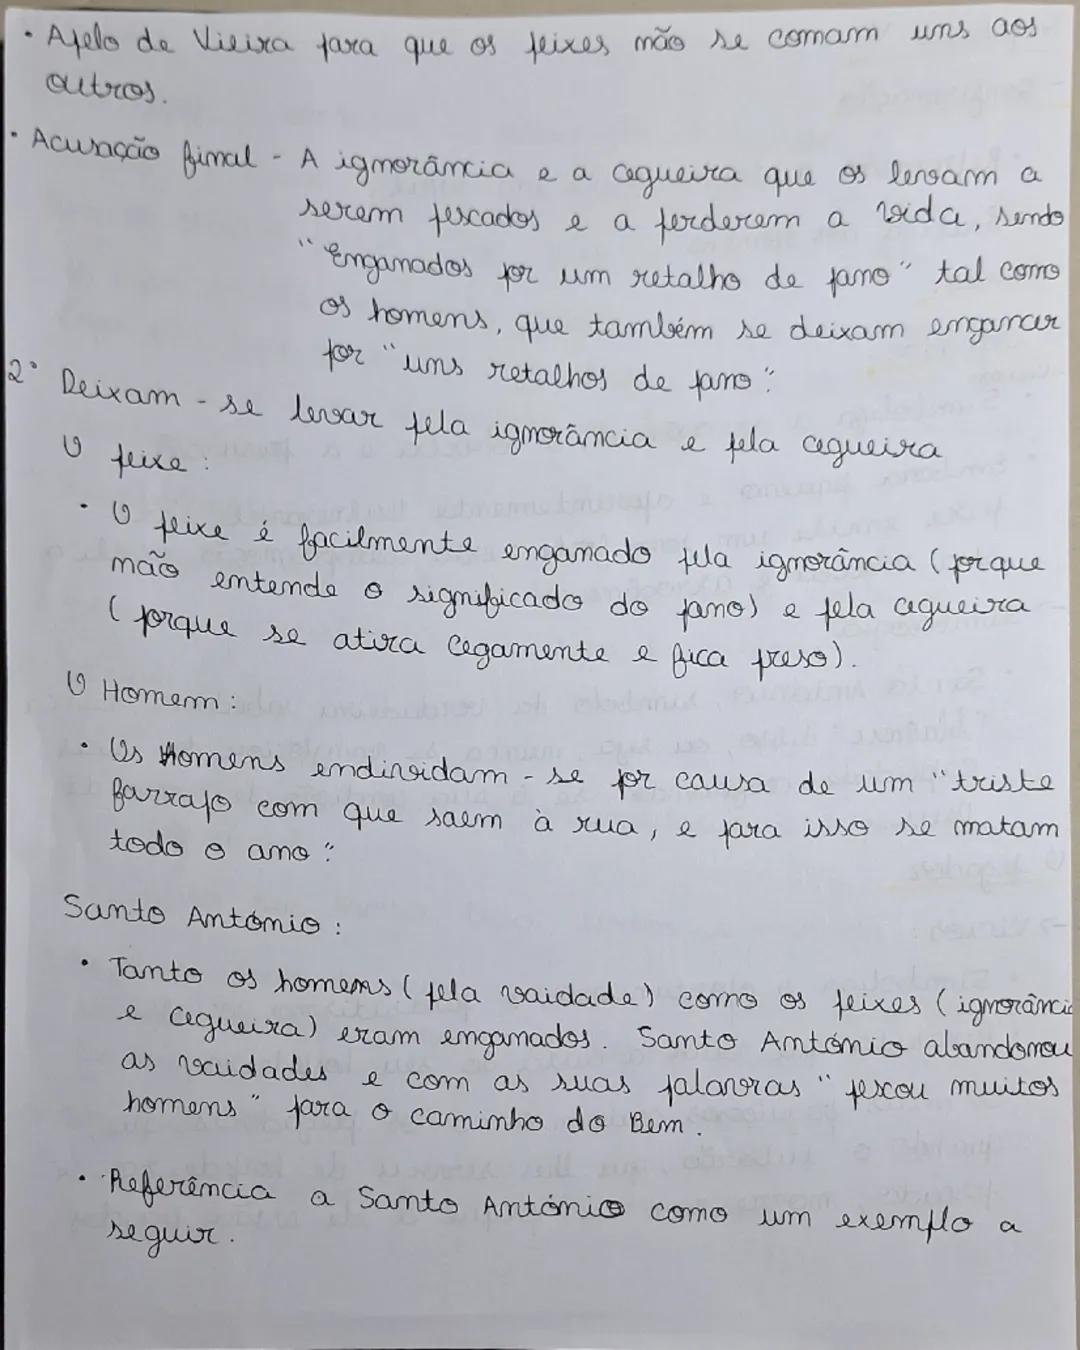 • Apelo de Vieira para que os peixes não se comam uns aos
outros.
• Acusação final - A ignorância e a cegueira que os levam a
serem pescados e a perderem a vida, sendo
"Enganados por um retalho de pano" tal como
os homens, que também se deixam enganar
por "uns retalhos de pano".
2° Deixam-se levar pela ignorância e pela cegueira
O peixe:
• O peixe é facilmente enganado pela ignorância (porque
não entende o significado do pano) e pela cegueira
(porque se atira cegamente e fica preso).
O Homem:
• Os Homens endividam-se por causa de um "triste
farrapo com que saem à rua, e para isso se matam
todo o ano".
Santo António:
• Tanto os homens (pela vaidade) como os peixes (ignorância
e cegueira) eram enganados. Santo António abandonou
as vaidades e com as suas palavras "pescou muitos
homens" para o caminho do Bem.
• Referência a Santo António como um exemplo a
seguir.